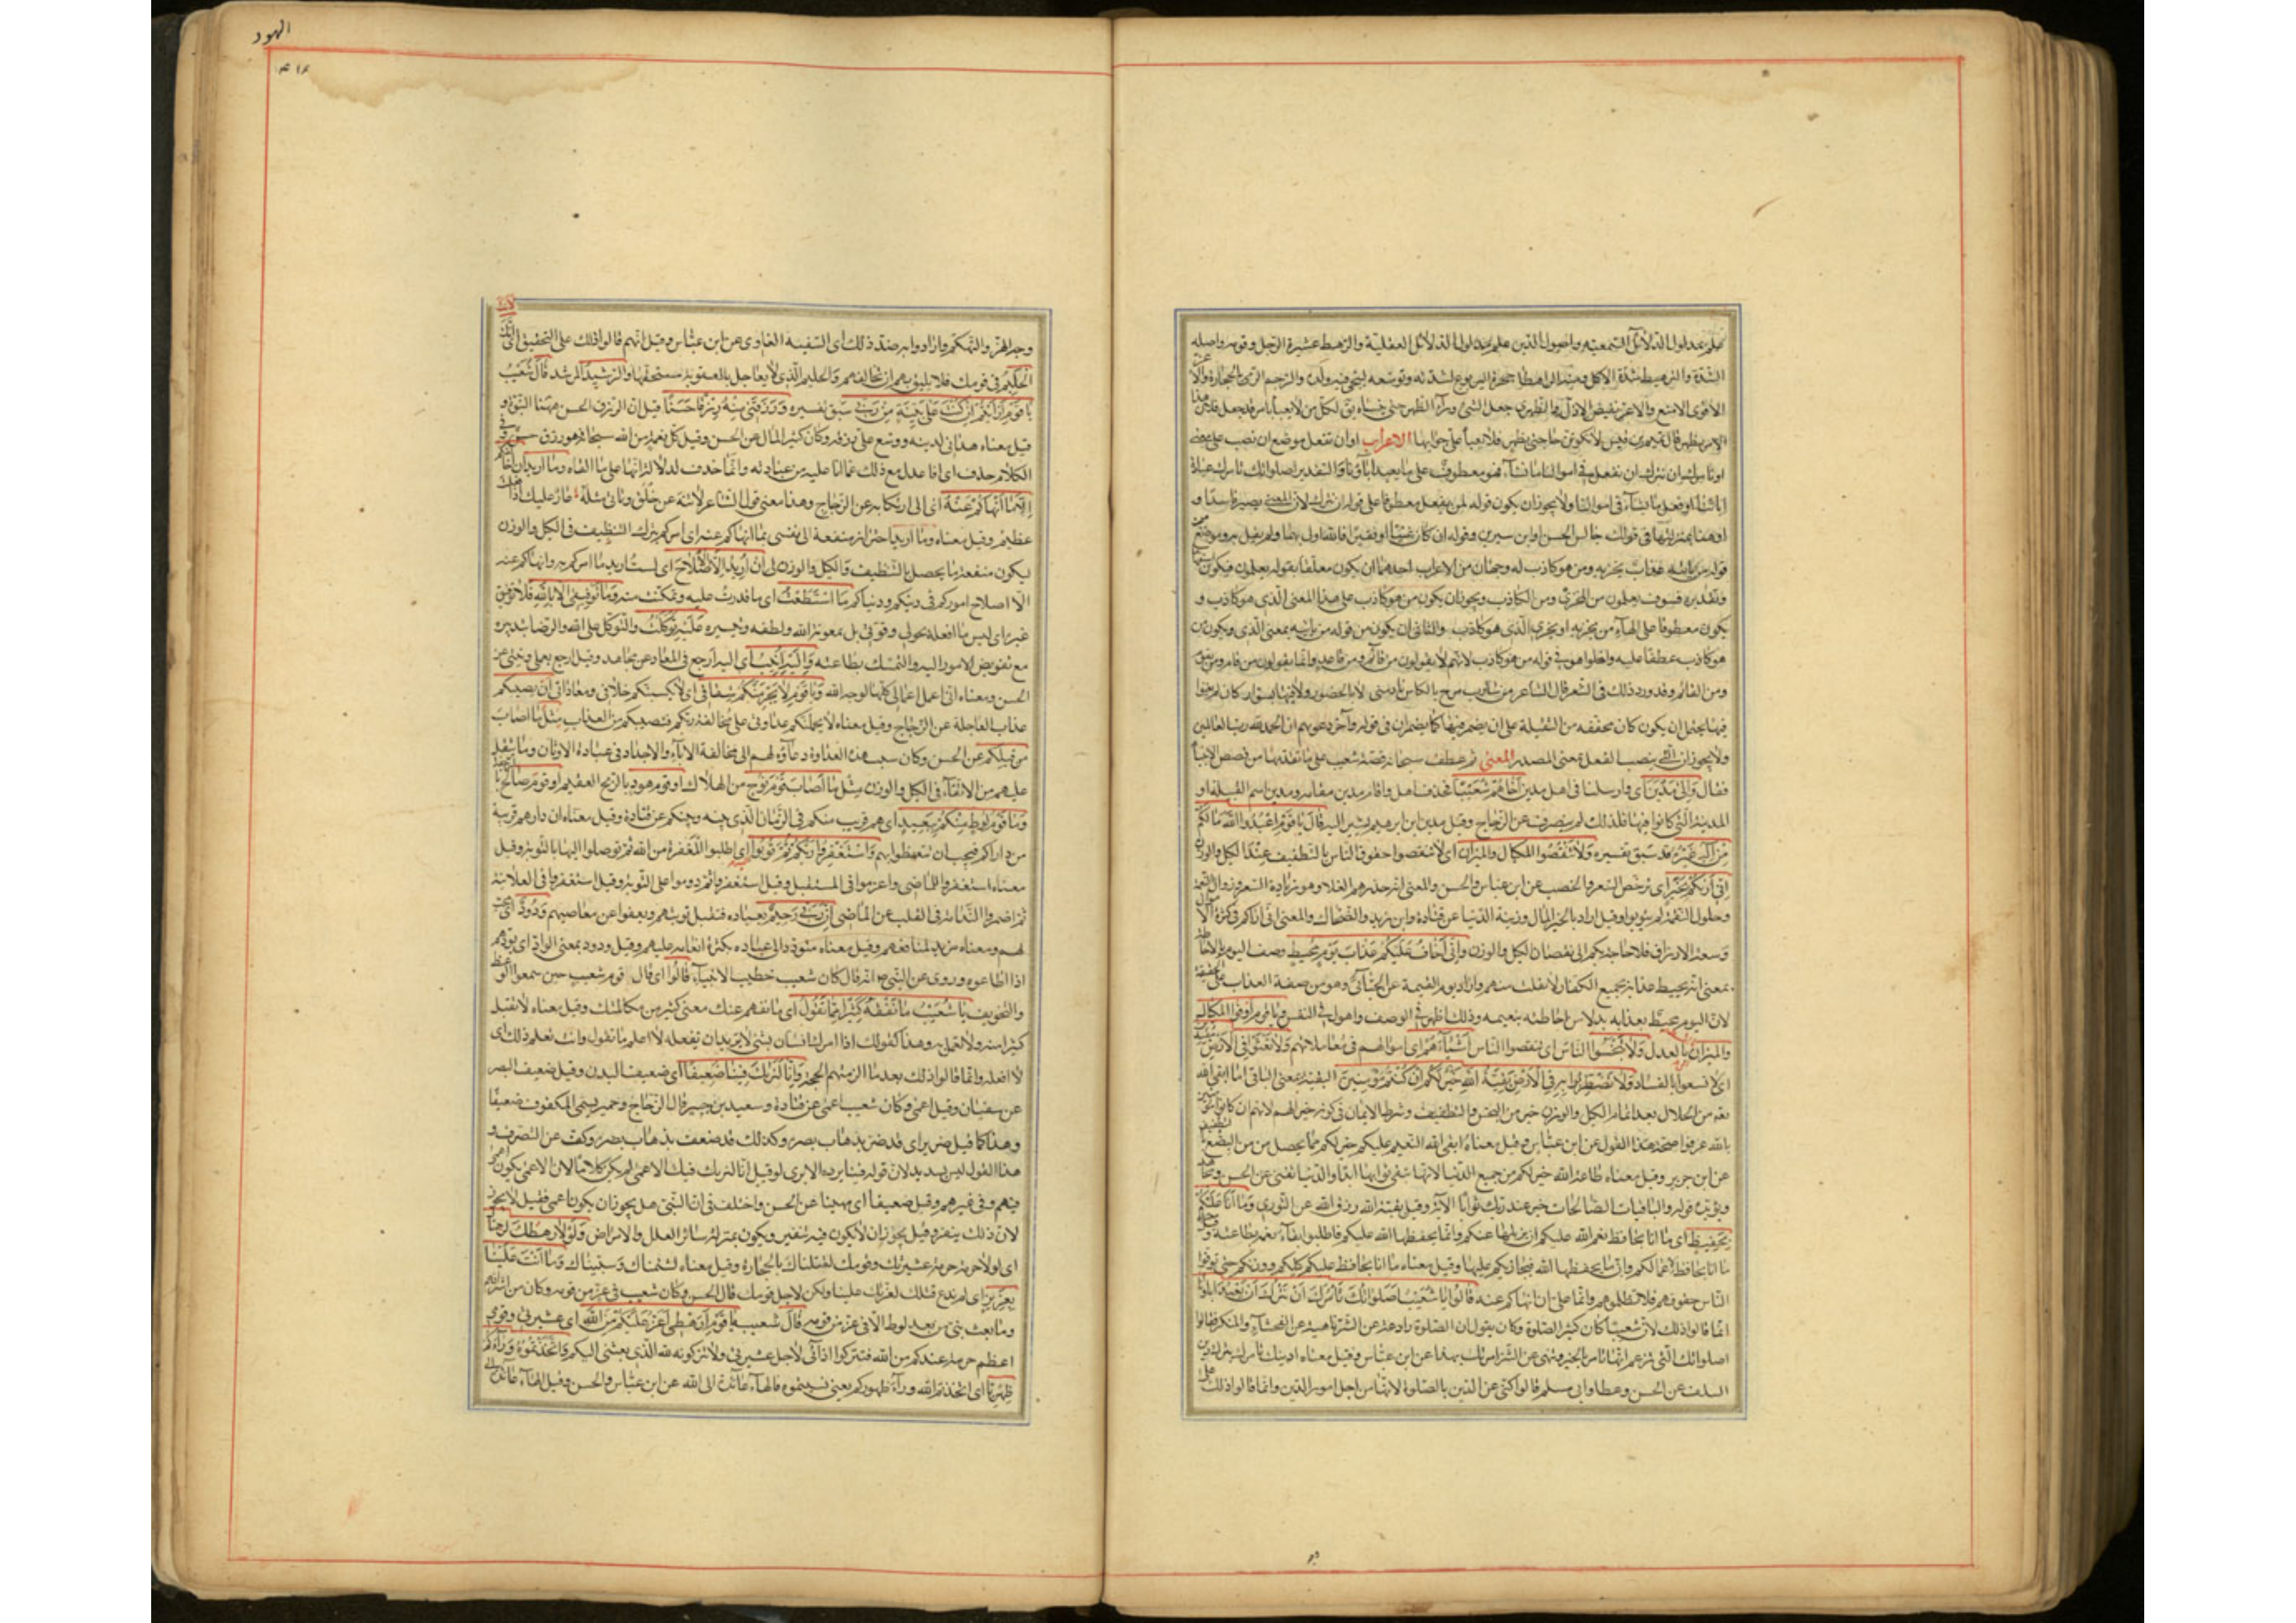 علم بمدلول الدلائل السمعية واصول الدين علم بمدلول الدلائل العقلية والرهط عشيرة الرجل وقومه واصله
الشدة والترهيط شدة الاكل ومنه الراهطا جحرة اليربوع لشدته وتوسعه ليخبي فيه ولده والرجم الرمي بالحجارة والاعز
الأقوى الامنع والاعز نقيض الاذل والظهري جعل الشيء وراء الظهر حتى
الاعراب او ان نفعل موضع ان نصب على معنى
او تأمرك ان نترك ان نفعل في اموالنا ما نشاء فهو معطوف على ما يعبد اباؤنا والتقدير اصلواتك تأمرك
ابائنا او فعل ما نشاء في اموالنا ولا يجوز ان يكون قوله ان نفعل معطوفا على قوله ان نترك لان المعنى يصير فاسدا و
او هنا بمنزلتها في قولك جالس الحسن او ابن سيرين وقوله ان كان غنيا او فقيرا فالله اولى بهما
قوله من يأتيه عذاب يخزيه ومن هو كاذب له وجهان من الاعراب احدهما ان يكون معلقا بقوله يعلمون فيكون
وتقديره فسوف يعلمون من المخزي ومن الكاذب ويجوز ان يكون من هو كاذب على هذا المعنى الذي هو كاذب و
يكون معطوفا على الهاء من يخزيه اي ويخزي الذي هو كاذب والثاني ان يكون من قوله من يأتيه بمعنى الذي ويكون من
هو كاذب عطفا عليه وادخلوا هو في قوله من هو كاذب لانهم لا يقولون من قائم ومن قاعد وانما يقولون من قام ومن يقوم
ومن القائم وقد ورد ذلك في الشعر قال الشاعر من شارب مربح بالكاس نادمني لا بالحصور ولا فيها بسوار
فيها يحتمل ان يكون كان مخففة من الثقيلة على ان يضمر فيها كما يضمر ان في قوله واخر دعويهم ان الحمد لله رب العالمين
المعنى ثم عطف سبحانه قصة شعيب على ما تقدمها من قصص الانبياء
فقال وَاِلىٰ مَدْيَنَ اي وارسلنا الى اهل مدين اَخَاهُمْ شُعَيْبًا فحذف اهل واقام مدين مقامه ومدين اسم القبيلة او
المدينة التي كانوا فيها فلذلك لم ينصرف عن الزجاج وقيل مدين ابن ابرهيم نسبوا اليه قَالَ يَا قَوْمِ اعْبُدُوا اللهَ مَا لَكُمْ
مِنْ اِلٰهٍ غَيْرُهُ قد سبق تفسيره وَلَا تَنْقُصُوا المِكْيَالَ والمِيزَانَ اي لا تنقصوا حقوق الناس بالتطفيف عند الكيل والوزن
اِنّي اَرَاكُمْ بِخَيْرٍ اي برخص السعر والخصب عن ابن عباس والحسن والمعنى انه حذرهم الغلاء وهو زيادة السعر وزوال النعمة
وحلول النقمة ان لم يتوبوا وقيل اراد بالخير المال وزينة الدنيا عن قتادة وابن زيد والضحاك والمعنى اني اراكم في كثرة الاموال
وسعة الارزاق فلا حاجة بكم الى نقصان الكيل والوزن وَاِنّي اَخَافُ عَلَيْكُمْ عَذَابَ يَوْمٍ مُحِيطٍ وصف اليوم بالاحاطة
بمعنى انه يحيط عذابه بجميع الكفار لا يفلت منهم واراد يوم القيمة عن الجبائي وهو من صفة العذاب على الحقيقة
لان اليوم محيط بعذابه بدلا من احاطته بنعيمه وذلك اظهر في الوصف واهول في النفس وَيَا قَوْمِ اَوْفُوا المِكْيَالَ
والمِيزَانَ بالقسط اي بالعدل وَلَا تَبْخَسُوا النَّاسَ اي لا تنقصوا الناس اَشْيَاءَهُمْ اي اموالهم في معاملاتهم وَلَا تَعْثَوْا في الأَرْضِ
اي لا تسعوا بالفساد ولا تضطربوا به في الأرض بَقِيَّةُ اللهِ خَيْرٌ لَكُمْ اِنْ كُنْتُمْ مُؤْمِنِينَ البقية بمعنى الباقي اي ما ابقى الله
بعد من الحلال بعد اتمام الكيل والوزن خير من البخس والتطفيف وشرط الايمان في كونه خيرا لهم لانهم ان كانوا مؤمنين
بالله عرفوا صحة هذا القول عن ابن عباس وقيل معناه ابقى الله النعيم عليكم خير لكم مما يحصل من
عن ابن جبير وقيل معناه طاعة الله خير لكم من جميع الدنيا لانها تبقى ثوابها ابدا والدنيا تفنى عن الحسن ومجاهد
ويؤيده قوله والباقيات الصالحات خير عند ربك ثوابا الاية وقيل بقية الله رزق الله عن الثوري وَمَا اَنَا عَلَيْكُمْ
بِحَفِيظٍ اي ما انا بحافظ نعم الله عليكم ان يزيلها عنكم وانما يحفظها الله عليكم فاطلبوا بقاء نعمه بطاعته وقيل
ما انا بحافظ لاعمالكم وانما يحفظها الله فيجازيكم عليها وقيل معناه ما انا بحافظ عليكم كيلكم ووزنكم حتى توفوا
الناس حقوقهم فلا تظلموهم وانما علي ان انهاكم عنه قَالُوا يَا شُعَيْبُ اَصَلَوَاتُكَ تَأْمُرُكَ اَنْ نَتْرُكَ مَا يَعْبُدُ اٰبَاؤُنَا
انما قالوا ذلك لان شعيبا كان كثير الصلوة وكان يقول ان الصلوة رادعة عن الشر ناهية عن الفحشاء والمنكر فقالوا
اصلواتك التي تزعم انها تأمر بالخير وتنهى عن الشر امرتك بهذا عن ابن عباس وقيل معناه ادينك يأمرك بترك دين
السلف عن الحسن وعطا وابي مسلم قالوا كنى عن الدين بالصلوة لانها من اجل امور الدين وانما قالوا ذلك على
الهود
٤١٤
وجه الهزء والتهكم وارادوا به ضد ذلك اي السفيه الغاوي عن ابن عباس وقيل انهم قالوا ذلك على التحقيق اي انك
الحليم في قومك فلا يليق بهم ان تخالفهم والحليم الذي لا يعاجل بالعقوبة مستحقها والرشيد المرشد قَالَ شُعَيْبُ
يَا قَوْمِ اَرَاَيْتُمْ اِنْ كُنْتُ عَلىٰ بَيِّنَةٍ مِنْ رَبّي سبق تفسيره وَرَزَقَنِي مِنْهُ رِزْقًا حَسَنًا قيل ان الرزق الحسن هيهنا النبوة و
قيل معناه هداني لدينه ووسع علي رزقه وكان كثير المال عن الحسن وقيل كل نعمة من الله سبحانه فهو رزق حسن وفي
الكلام حذف اي افاعدل مع ذلك عما انا عليه من عبادته وانما حذف لدلالة الكلام عليه وَمَا اُرِيدُ اَنْ اُخَالِفَكُمْ
اِلىٰ مَا اَنْهَاكُمْ عَنْهُ اي الى ارتكابه عن الزجاج وهذا معنى قول الشاعر لا تنه عن خلق وتأتي مثله عار عليك اذا فعلت
عظيم وقيل معناه وما اريد اجترار منفعة الى نفسي بما انهاكم عنه اي امركم بترك التطفيف في الكيل والوزن
ليكون منفعة ما يحصل بالتطفيف في الكيل والوزن لي اِنْ اُرِيدُ اِلَّا الاِصْلَاحَ اي لست اريد بما امركم به وانهاكم عنه
الا اصلاح اموركم في دينكم ودنياكم مَا اسْتَطَعْتُ اي ما قدرت عليه وتمكنت منه وَمَا تَوْفِيقِي اِلَّا بِاللهِ فلا توفيق
غيره اي ليس ما افعله بحولي وقوتي بل بمعونة الله ولطفه وتيسيره عَلَيْهِ تَوَكَّلْتُ والتوكل على الله والرضا بتدبيره
مع تفويض الامور اليه والتمسك بطاعته وَاِلَيْهِ اُنِيبُ اي اليه ارجع في المعاد عن مجاهد وقيل ارجع بعملي ونيتي عن
الحسن ومعناه اني اعمل اعمالي كلها لوجه الله وَيَا قَوْمِ لَا يَجْرِمَنَّكُمْ شِقَاقِي اي لا يكسبنكم خلافي ومعاداتي اَنْ يُصِيبَكُمْ
عذاب العاجلة عن الزجاج وقيل معناه لا يحملنكم عداوتي على مخالفة ربكم فيصيبكم من العذاب مِثْلُ مَا اَصَابَ
من قبلكم عن الحسن وكان سبب هذه العداوة دعاؤه لهم الى مخالفة الاباء والاجداد في عبادة الاوثان وما يثقل
عليهم من الايفاء في الكيل والوزن مِثْلُ مَا اَصَابَ قَوْمَ نُوحٍ من الهلاك او قَوْمَ هُودٍ بالريح العقيم او قَوْمَ صَالِحٍ بالرجفة
وَمَا قَوْمُ لُوطٍ مِنْكُمْ بِبَعِيدٍ اي هم قريب منكم في الزمان الذي بينهم وبينكم عن قتادة وقيل معناه ان دارهم قريبة
من داركم فيجب ان تتعظوا بهم وَاسْتَغْفِرُوا رَبَّكُمْ ثُمَّ تُوبُوا اِلَيْهِ اي اطلبوا المغفرة من الله ثم توصلوا اليها بالتوبة وقيل
معناه استغفروا للماضي واعزموا في المستقبل وقيل استغفروا ثم دوموا على التوبة وقيل استغفروا في العلانية
ثم اضمروا الندامة في القلب عن الماضي اِنَّ رَبّي رَحِيمٌ بعباده فيقبل توبتهم ويعفو عن معاصيهم وَدُودٌ اي محب
لهم ومعناه مريد لمنافعهم وقيل معناه متودد الى عباده بكثرة انعامه عليهم وقيل ودود بمعنى الواد اي يودهم
اذا اطاعوه وروي عن النبي ص انه قال كان شعيب خطيب الانبياء قَالُوا اي قال قوم شعيب حين سمعوا الوعظ
والتخويف يَا شُعَيْبُ مَا نَفْقَهُ كَثِيرًا مِمَّا تَقُولُ اي ما نفهم عنك معنى كثير من كلامك وقيل معناه لا نقبل
كثيرا منه ولا نعمل به وهذا كقولك اذا امرك انسان بشيء لا تريد ان تفعله لا اعلم ما تقول وانت تعلم ذلك اي
لا افعله وانما قالوا ذلك بعدما الزمهم الحجة وَاِنَّا لَنَرَاكَ فِينَا ضَعِيفًا اي ضعيف البدن وقيل ضعيف البصر
عن سفيان وقيل اعمى وكان شعيب اعمى عن قتادة وسعيد بن جبير قال الزجاج وحمير يسمي المكفوف ضعيفا
وهذا كما قيل ضرير اي قد ضر بذهاب بصره وكذلك قد ضعف بذهاب بصره وكف عن التصرف و
هذا القول ليس بسديد لان قوله فينا يرده الا ترى لو قيل انا لنريك فيك الاعمى لم يكن كلاما لان الاعمى يكون اعمى
فيهم وفي غيرهم وقيل ضعيفا اي مهينا عن الحسن واختلف في ان النبي هل يجوز ان يكون اعمى فقيل لا يجوز
لان ذلك ينفر وقيل يجوز ان لا يكون فيه تنفير ويكون بمنزلة سائر العلل والامراض وَلَوْلَا رَهْطُكَ لَرَجَمْنَاكَ
اي لولا حرمة عشيرتك وقومك لقتلناك بالحجارة وقيل معناه لشتمناك وسببناك وَمَا اَنْتَ عَلَيْنَا
بِعَزِيزٍ اي لم ندع قتلك لعزتك علينا ولكن لاجل قومك قال الحسن وكان شعيب في عز من قومه وكان من اشرافهم
وما بعث نبي من بعد لوط الا في عز من قومه قَالَ شعيب يَا قَوْمِ اَرَهْطِي اَعَزُّ عَلَيْكُمْ مِنَ اللهِ اي عشيرتي وقومي
اعظم حرمة عندكم من الله فتتركوا اذائي لاجل عشيرتي ولا تتركونه لله الذي بعثني اليكم وَاتَّخَذْتُمُوهُ وَرَاءَكُمْ
ظِهْرِيًّا اي اتخذتم الله وراء ظهوركم يعني نسيتموه فالهاء عائدة الى الله عن ابن عباس والحسن وقيل الهاء عائدة الى